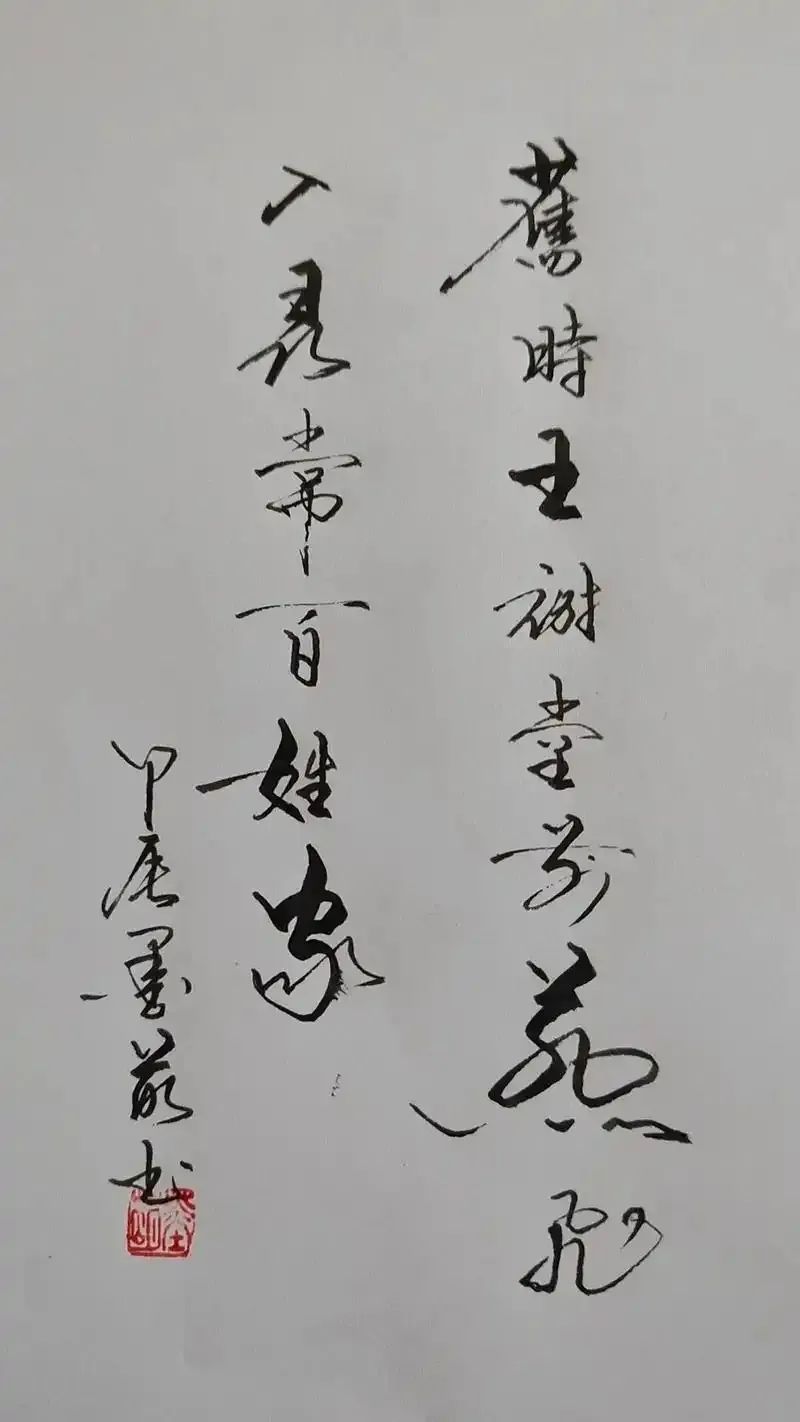 舊時王謝堂前燕飛
入尋常百姓家
甲辰墨 书